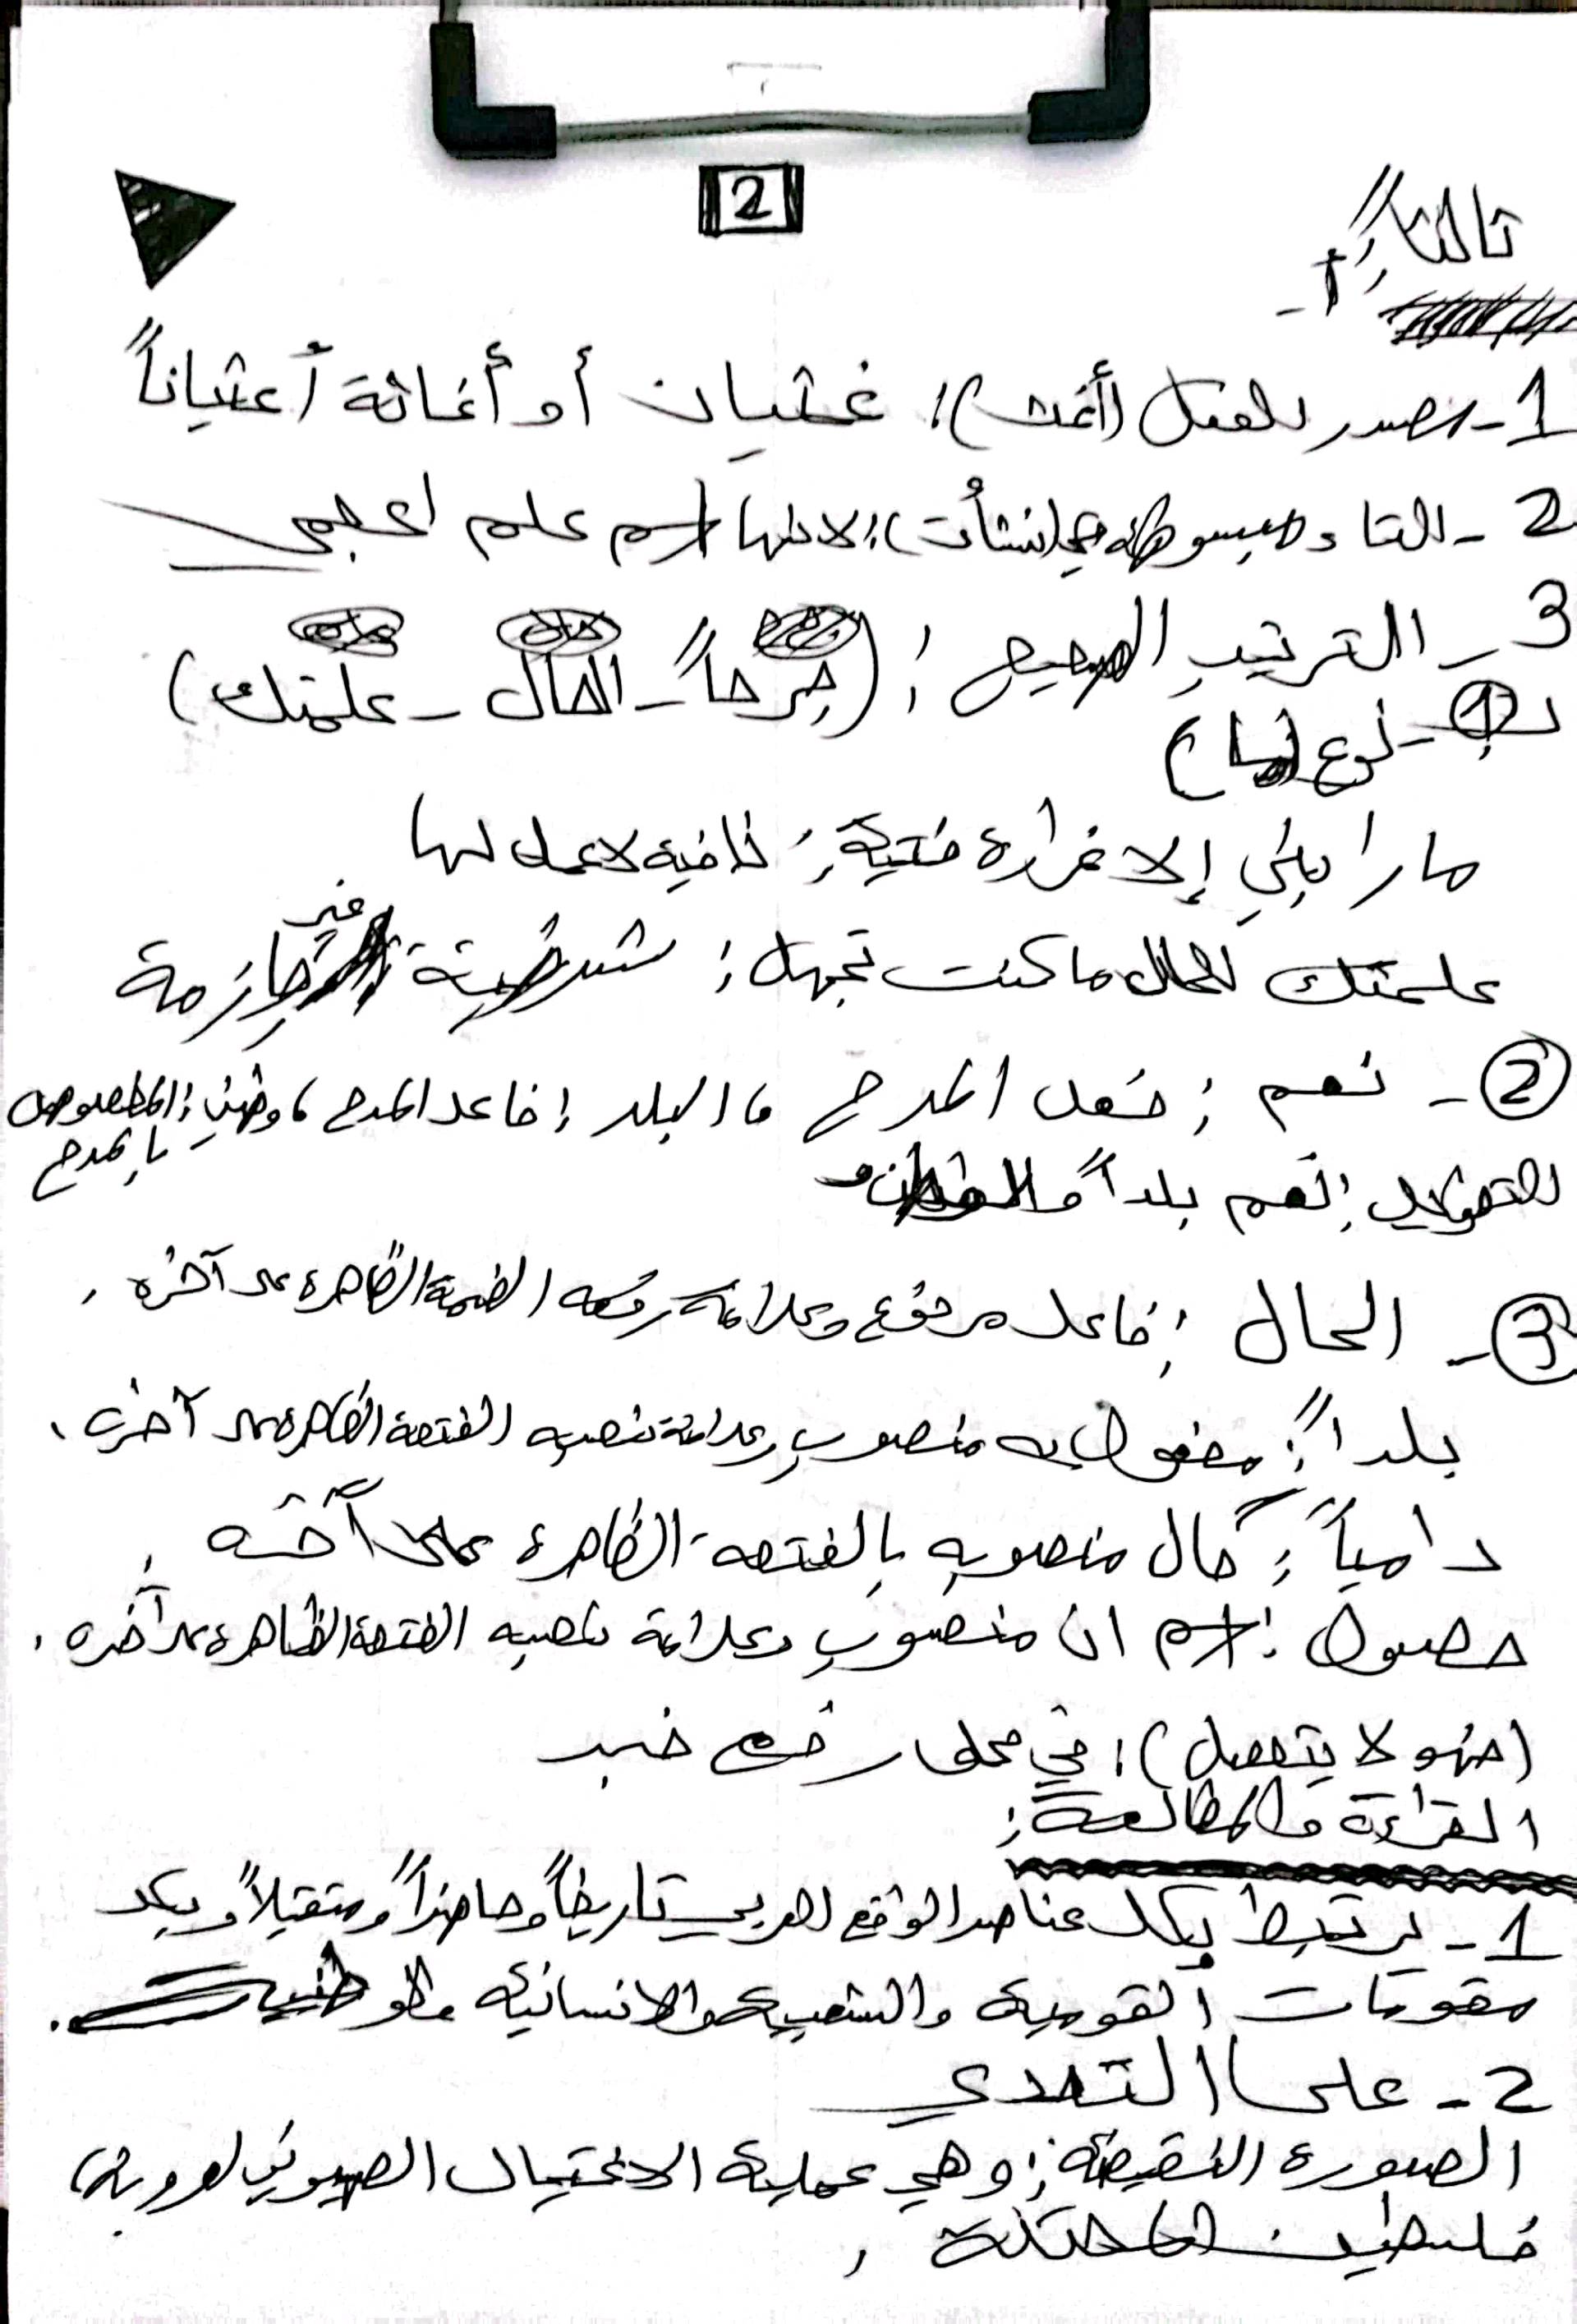 2
ثالثاً:
أ -
1- مصدر للفعل (أغث): غثيان أو أغاثة أغثياناً
2- التاء مبسوطة في (نشأت): لانها اسم علم اعجمي
3- الترتيب الصحيح: (جرحاً - الحال - علمتك)
ب ① - نوع (ما)
ما رابني إلا غرارة فتية: نافية لا عمل لها
علمتك الحال ما كنت تجهل: شرطية غير جازمة
② - نعم: فعل المدح، البلد: فاعل المدح، وطني: المخصوص بالمدح
التحويل: نعم بلداً الوطن
③ - الحال: فاعل مرفوع وعلامة رفعه الضمة الظاهرة على آخره.
بلداً: مفعول به منصوب وعلامة نصبه الفتحة الظاهرة على آخره.
دامياً: حال منصوبه بالفتحة الظاهرة على آخره.
حصول: اسم ان منصوب وعلامة نصبه الفتحة الظاهرة على آخره.
(فهو لا يتصل): في محل رفع خبر
القراءة والمطالعة:
1- يرتبط بكل عناصر الواقع العربي تاريخاً وحاضراً ومتقبلاً وبكل
مقومات القومية والشعبية والانسانية والوطنية.
2- على التحدي
الصورة النقيضة: وهي عملية الاغتيال الصهيوني لعروبة
فلسطين المحتلة.